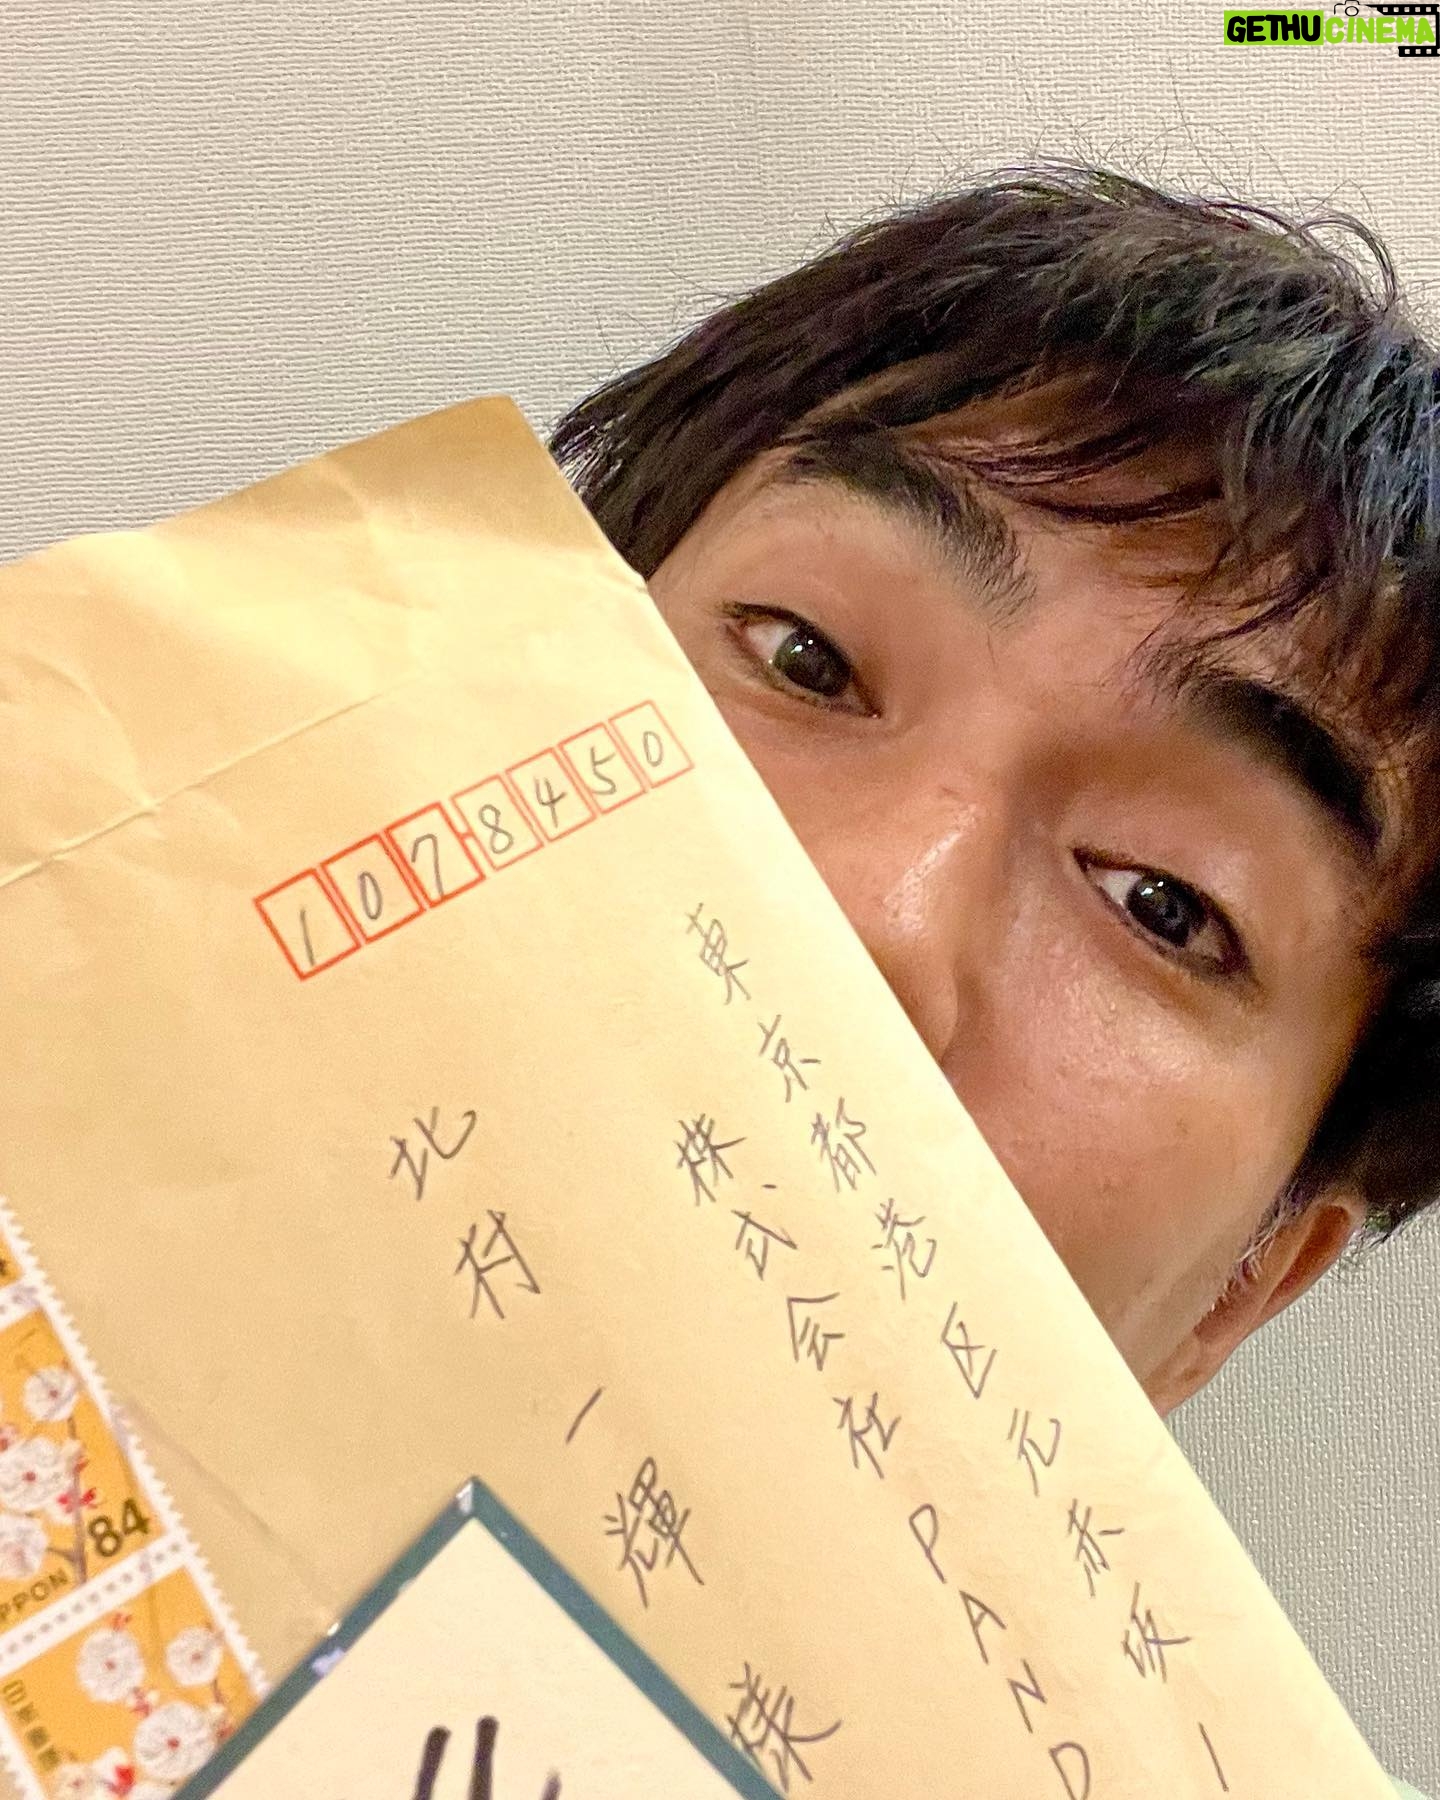 GETHUCINEMA
1078450
東京都港区元赤坂一
株式会社PAND
北村一輝様
84
NIPPON
日本郵便